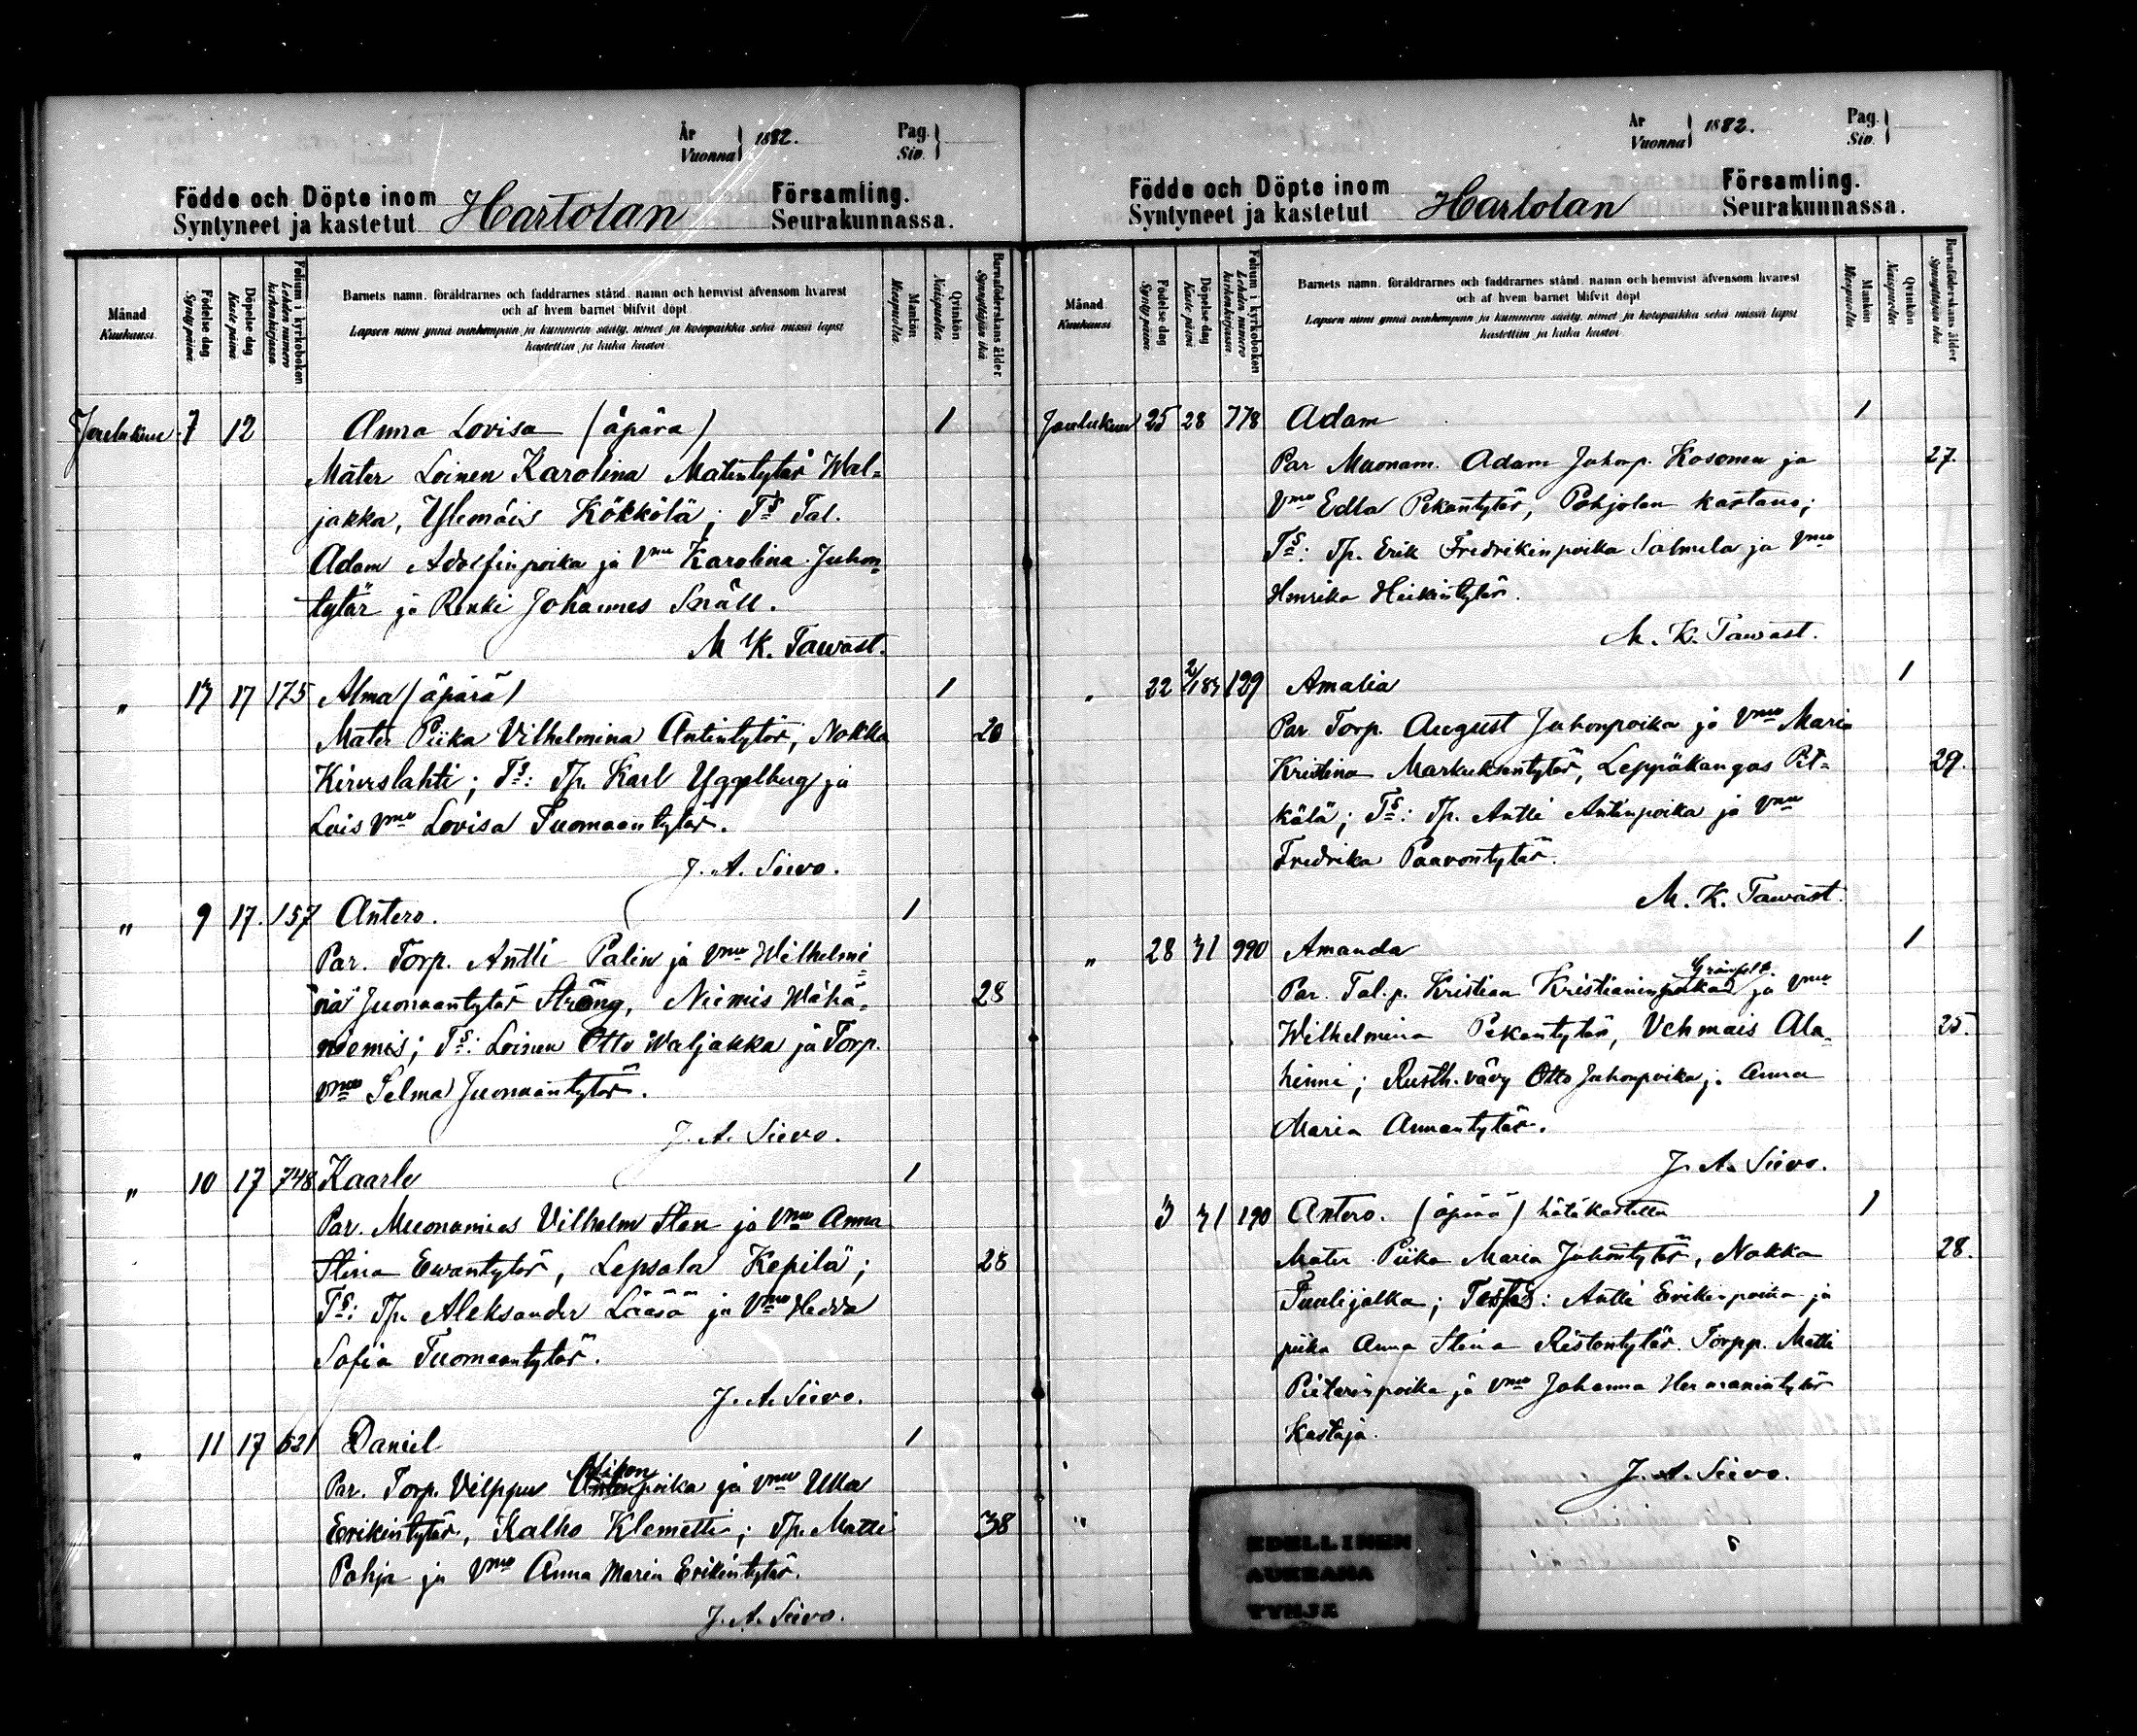 År
Vuonna
1882.
Pag.
Siv.
Födde och Döpte inom
Syntyneet ja kastetut
Hartolan
Församling.
Seurakunnassa.
Månad
Kuukausi.
Födelse dag
Synty päivä.
Döpelse dag
Kaste päivä
Folium i kyrkoboken
Lehden numero kirkonkirjassa.
Barnets namn, föräldrarnes och faddrarnes stånd, namn och hemvist äfvensom hvarest
och af hvem barnet blifvit döpt
Lapsen nimi ynnä vanhempain ja kummein sääty, nimet ja kotopaikka sekä missä lapsi
kastettiin ja kuka kastoi
Mankön
Miespuolta.
Qvinkön
Naispuolta
Barnaföderskans ålder
Synnyttäjän ikä
Joulukuu 7 12 Anna Lovisa (äpärä) 1
Mater Loinen Karolina Matintytär Wal=
jakka, Ylemäis Kökkölä; Ts Tal.
Adam Adolfinpoika ja Vmo Karolina Juhon
tytär ja Renki Johannes Snäll.
M K. Tawast.
" 13 17 175 Alma (äpärä) 1
Mater Piika Vilhelmina Antintytär, Nokka 20
Kirveslahti; Ts: Tp. Karl Yggelburg ja
Lois Vmo Lovisa Tuomaantytär.
J. A. Sievo.
" 9 17. 157 Antero. 1
Par. Torp. Antti Palin ja Vmo Wilhelmi
na Juonaantytär Sträng, Niemis Wähä= 28
niemis; Ts: Loinen Otto Waljakka ja Torp.
Vmo Selma Juonaantytär.
J. A. Sievo.
" 10 17 748 Kaarle 1
Par. Muonamies Vilhelm Sten ja Vmo Anna
Stina Ewantytär, Lepsala Kepilä; 28
Ts: Tp. Aleksander Lääsä ja Vmo Hedda
Sofia Tuomaantytär.
J. A. Sievo.
" 11 17 621 Daniel 1
Par. Torp. Vilppu poika ja Vmo Ulla
Erikintytär, Kalho Klemetti; Tp. Matti 38
Pohja ja Vmo Anna Maria Erikintytär.
J. A. Sievo.
År
Vuonna
1882.
Pag.
Siv.
Födde och Döpte inom
Syntyneet ja kastetut
Hartolan
Församling.
Seurakunnassa.
Månad
Kuukausi
Födelse dag
Synty päivä
Döpelse dag
Kaste päivä
Folium i kyrkoboken
Lehden numero kirkonkirjassa.
Barnets namn, föräldrarnes och faddrarnes stånd, namn och hemvist äfvensom hvarest
och af hvem barnet blifvit döpt
Lapsen nimi ynnä vanhempain ja kummein sääty, nimet ja kotopaikka sekä missä lapsi
kastettiin ja kuka kastoi
Mankön
Miespuolta.
Qvinkön
Naispuolta
Barnaföderskans ålder
Synnyttäjän ikä
Joulukuu 25 28 778 Adam 1
Par Muonam. Adam Juhonp. Kosonen ja 27.
Vmo Edla Pekantytär, Pohjolan kartano;
Ts: Tp. Erik Fredrikinpoika Salmela ja Vmo
Henrika Heikintytär.
M. K. Tawast.
" 22 2/1 83 129 Amalia 1
Par Torp. August Juhonpoika ja Vmo Maria
Kristina Markuksentytär, Leppäkangas Pit= 29.
kälä; Ts: Tp. Antti Antinpoika ja Vmo
Fredrika Paavontytär.
M. K. Tawast.
" 28 31 990 Amanda 1
Grönfelt.
Par. Tal.p. Kristian Kristianinpoika ja Vmo
Wilhelmina Pekantytär, Vehmais Ala 25.
hinni; Rusth. vävy Otto Juhonpoika j. Anna
Maria Annantytär.
J. A. Sievo.
3 31 190 Antero. (äpärä) hätäkastettu 1
Mater Piika Maria Juhontytär, Nokka 28.
Tuulijalka; Testes: Antti Erikinpoika ja
piika Anna Stina Ristontytär. Torpp. Matti
Pieterinpoika ja Vmo Johanna Hermanintytär
Kastaja.
J. A. Sievo.
"
EDELLINEN
AUKEAMA
TYHJÄ